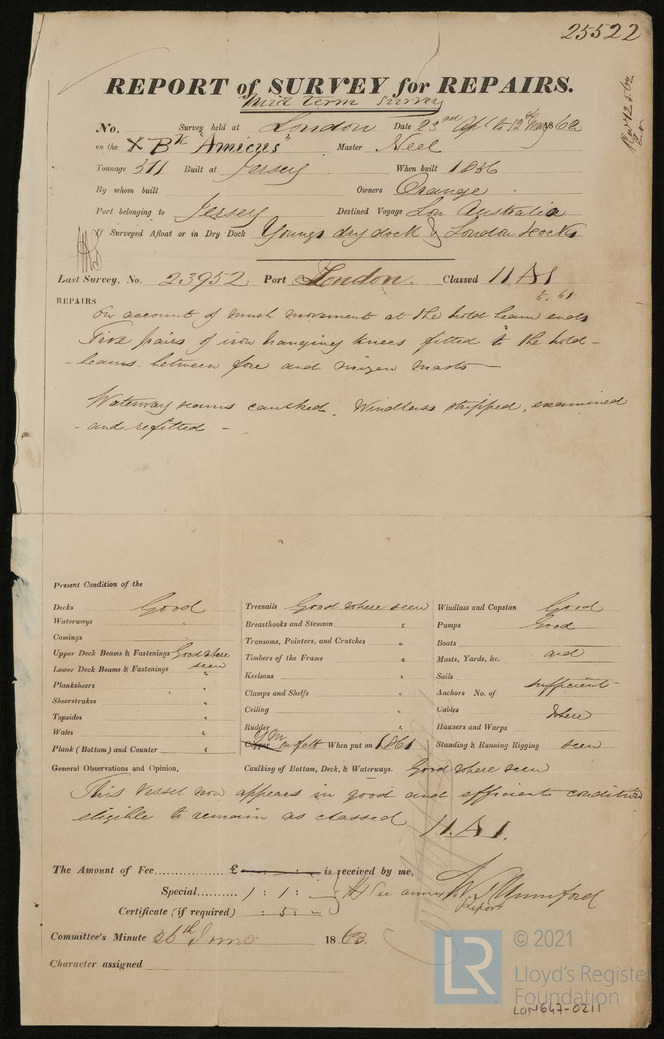 25522
REPORT of SURVEY for REPAIRS.
Mid term survey
No. Survey held at London Date 23rd Apl to 12th May 1862
on the Bk "Amicus" Master Neel
Tonnage 311 Built at Jersey When built 1836
By whom built Owners Orange
Port belonging to Jersey Destined Voyage Lon Australia
Surveyed Afloat or in Dry Dock Youngs dry dock & London Docks
Last Survey, No. 23952 Port London. Classed 11 A1
5.61
REPAIRS
On account of much movement at the hold beam ends
Five pairs of iron hanging knees fitted to the hold-
-beams between fore and mizen masts—
Waterway seams caulked. Windlass stripped, examined
-and refitted-
Present Condition of the
Decks Good Treenails Good where seen Windlass and Capstan Good
Waterways " Breasthooks and Stemson " Pumps Good
Comings Transoms, Pointers, and Crutches " Boats
Upper Deck Beams & Fastenings Good where Timbers of the Frame " Masts, Yards, &c. and
Lower Deck Beams & Fastenings seen Keelsons " Sails
Planksheers " Clamps and Shelfs " Anchors No. of sufficient
Sheerstrakes " Ceiling " Cables where
Topsides " Rudder " Hawsers and Warps
Wales " Copper YM on felt When put on 1861 Standing & Running Rigging seen
Plank (Bottom) and Counter "
General Observations and Opinion, Caulking of Bottom, Deck, & Waterways. Good where seen
This vessel now appears in good and efficient condition
eligible to remain as classed 11.A1.
The Amount of Fee £ is received by me,
Special 1 : 1 : - See annual report
Certificate (if required) : 5 : -
Committee's Minute 26th 1863.
Character assigned
LR
© 2021
Lloyd's Register
Foundation
LON647-0211